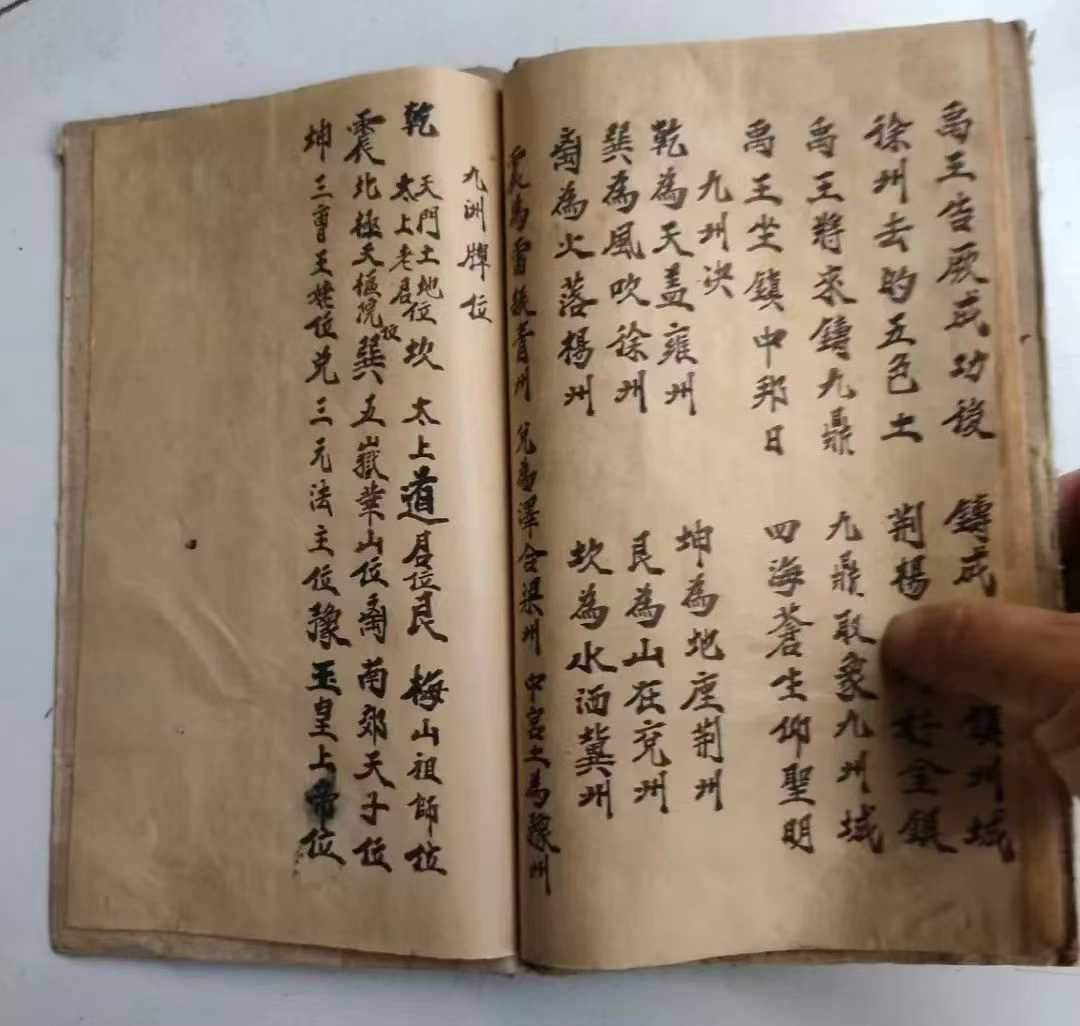 禹王告厥成功後 鑄成 鎮州域
徐州去的五色土 荆揚 好金銀
禹王將來鑄九鼎 九鼎取象九州域
禹王坐鎮中邦日 四海蒼生仰聖明
九州决
乾為天蓋雍州 坤為地座荆州
巽為風吹徐州 艮為山在兖州
离為火落楊州 坎為水洒冀州
震為雷振青州 兑為澤合梁州 中宫土為豫州
九洲牌位
乾 天門土地位 太上老君位 坎 太上道君位 艮 梅山祖師位
震 北極天樞院位 巽 五嶽華山位 离 南郊天子位
坤 三曹王姥位 兑 三元法主位 豫 玉皇上帝位